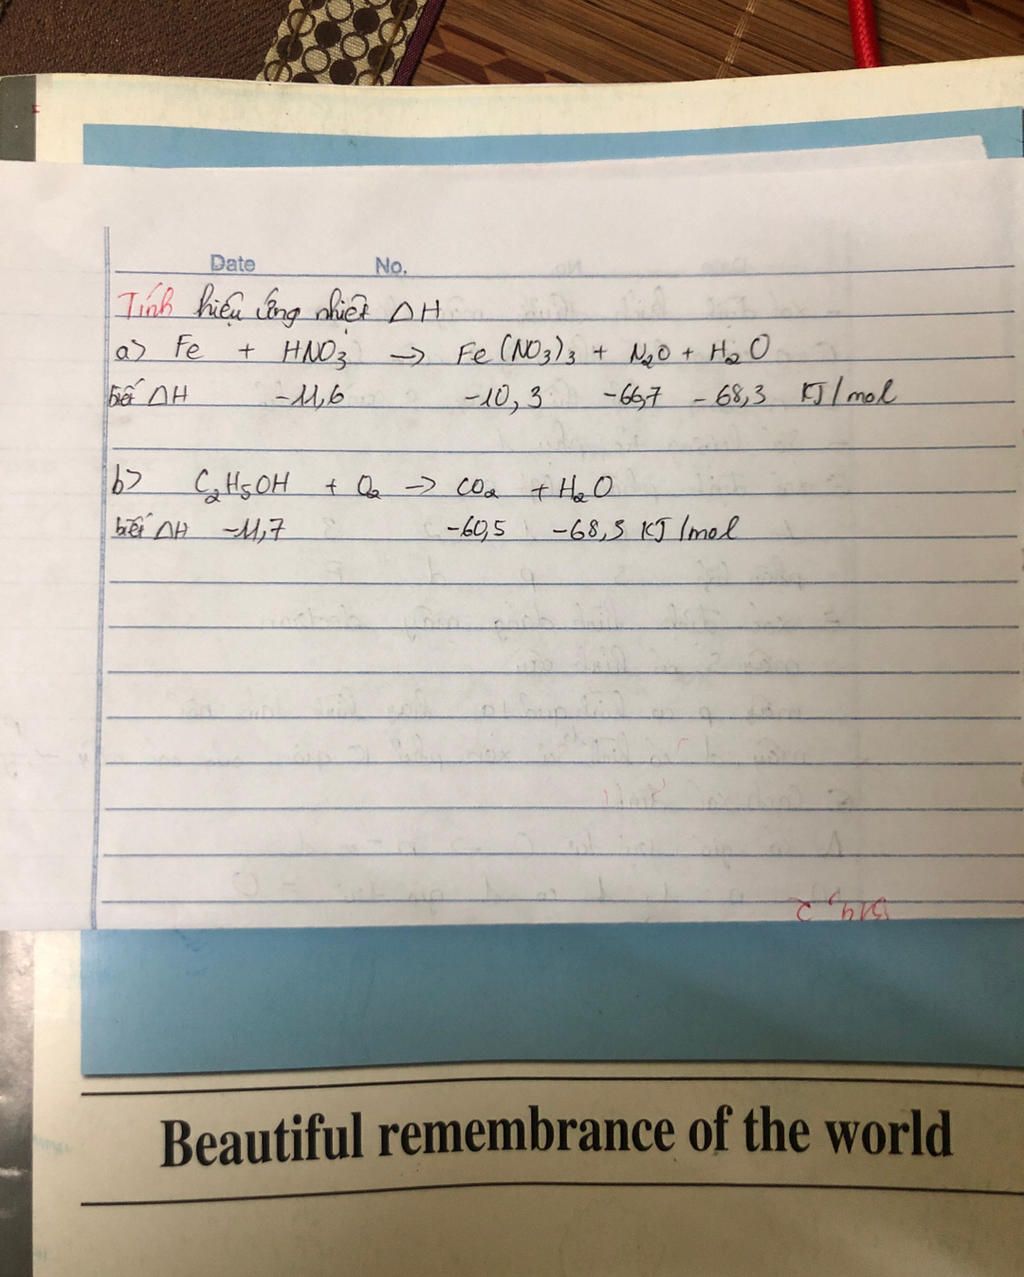 Date No.
Tính hiệu ứng nhiệt ΔH
a) Fe + HNO₃ → Fe(NO₃)₃ + N₂O + H₂O
biết ΔH -11,6 -10,3 -66,7 -68,3 KJ/mol
b) C₂H₅OH + O₂ → CO₂ + H₂O
biết ΔH -11,7 -60,5 -68,3 KJ/mol
Beautiful remembrance of the world